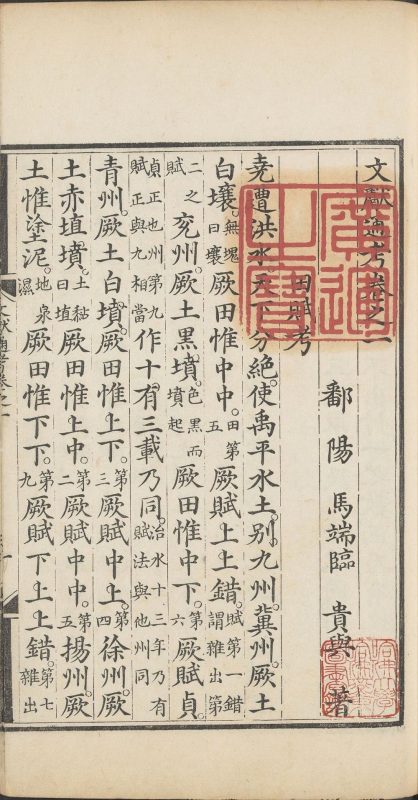 文獻通考卷之一
鄱陽 馬端臨 貴與 著
田賦考
堯遭洪水天下分絶。使禹平水土。别九州。冀州。厥土
白壤。無塊曰壤厥田惟中中。田第五厥賦上上錯。賦第一錯謂雜出第
二之賦兖州。厥土黑墳。色黑而墳起厥田惟中下。第六厥賦貞。
貞正也州第九賦正與九相當作十有三載乃同。治水十三年乃有賦法與他州同
青州。厥土白墳。厥田惟上下。第三厥賦中上。第四徐州。厥
土赤埴墳。土黏曰埴厥田惟上中。第二厥賦中中。第五揚州。厥
土惟塗泥。地泉濕厥田惟下下。第九厥賦下上上錯。第七雜出
文獻通考卷之一